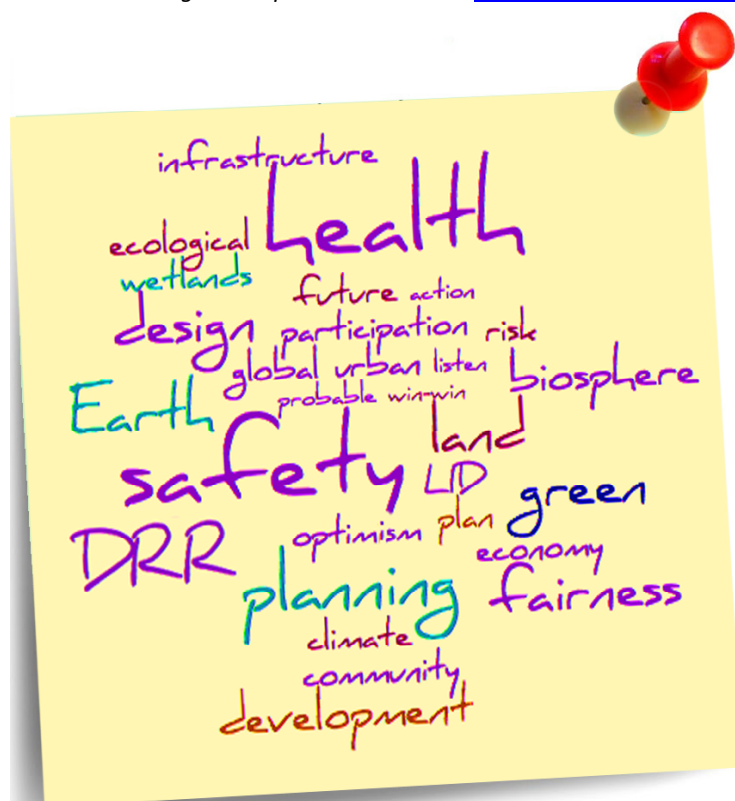 infrastructure
health
ecological
wetlands
future action
design participation risk
global urban listen biosphere
Earth probable win-win
land
safety LID
green
DRR optimism plan
economy
planning fairness
climate
community
development